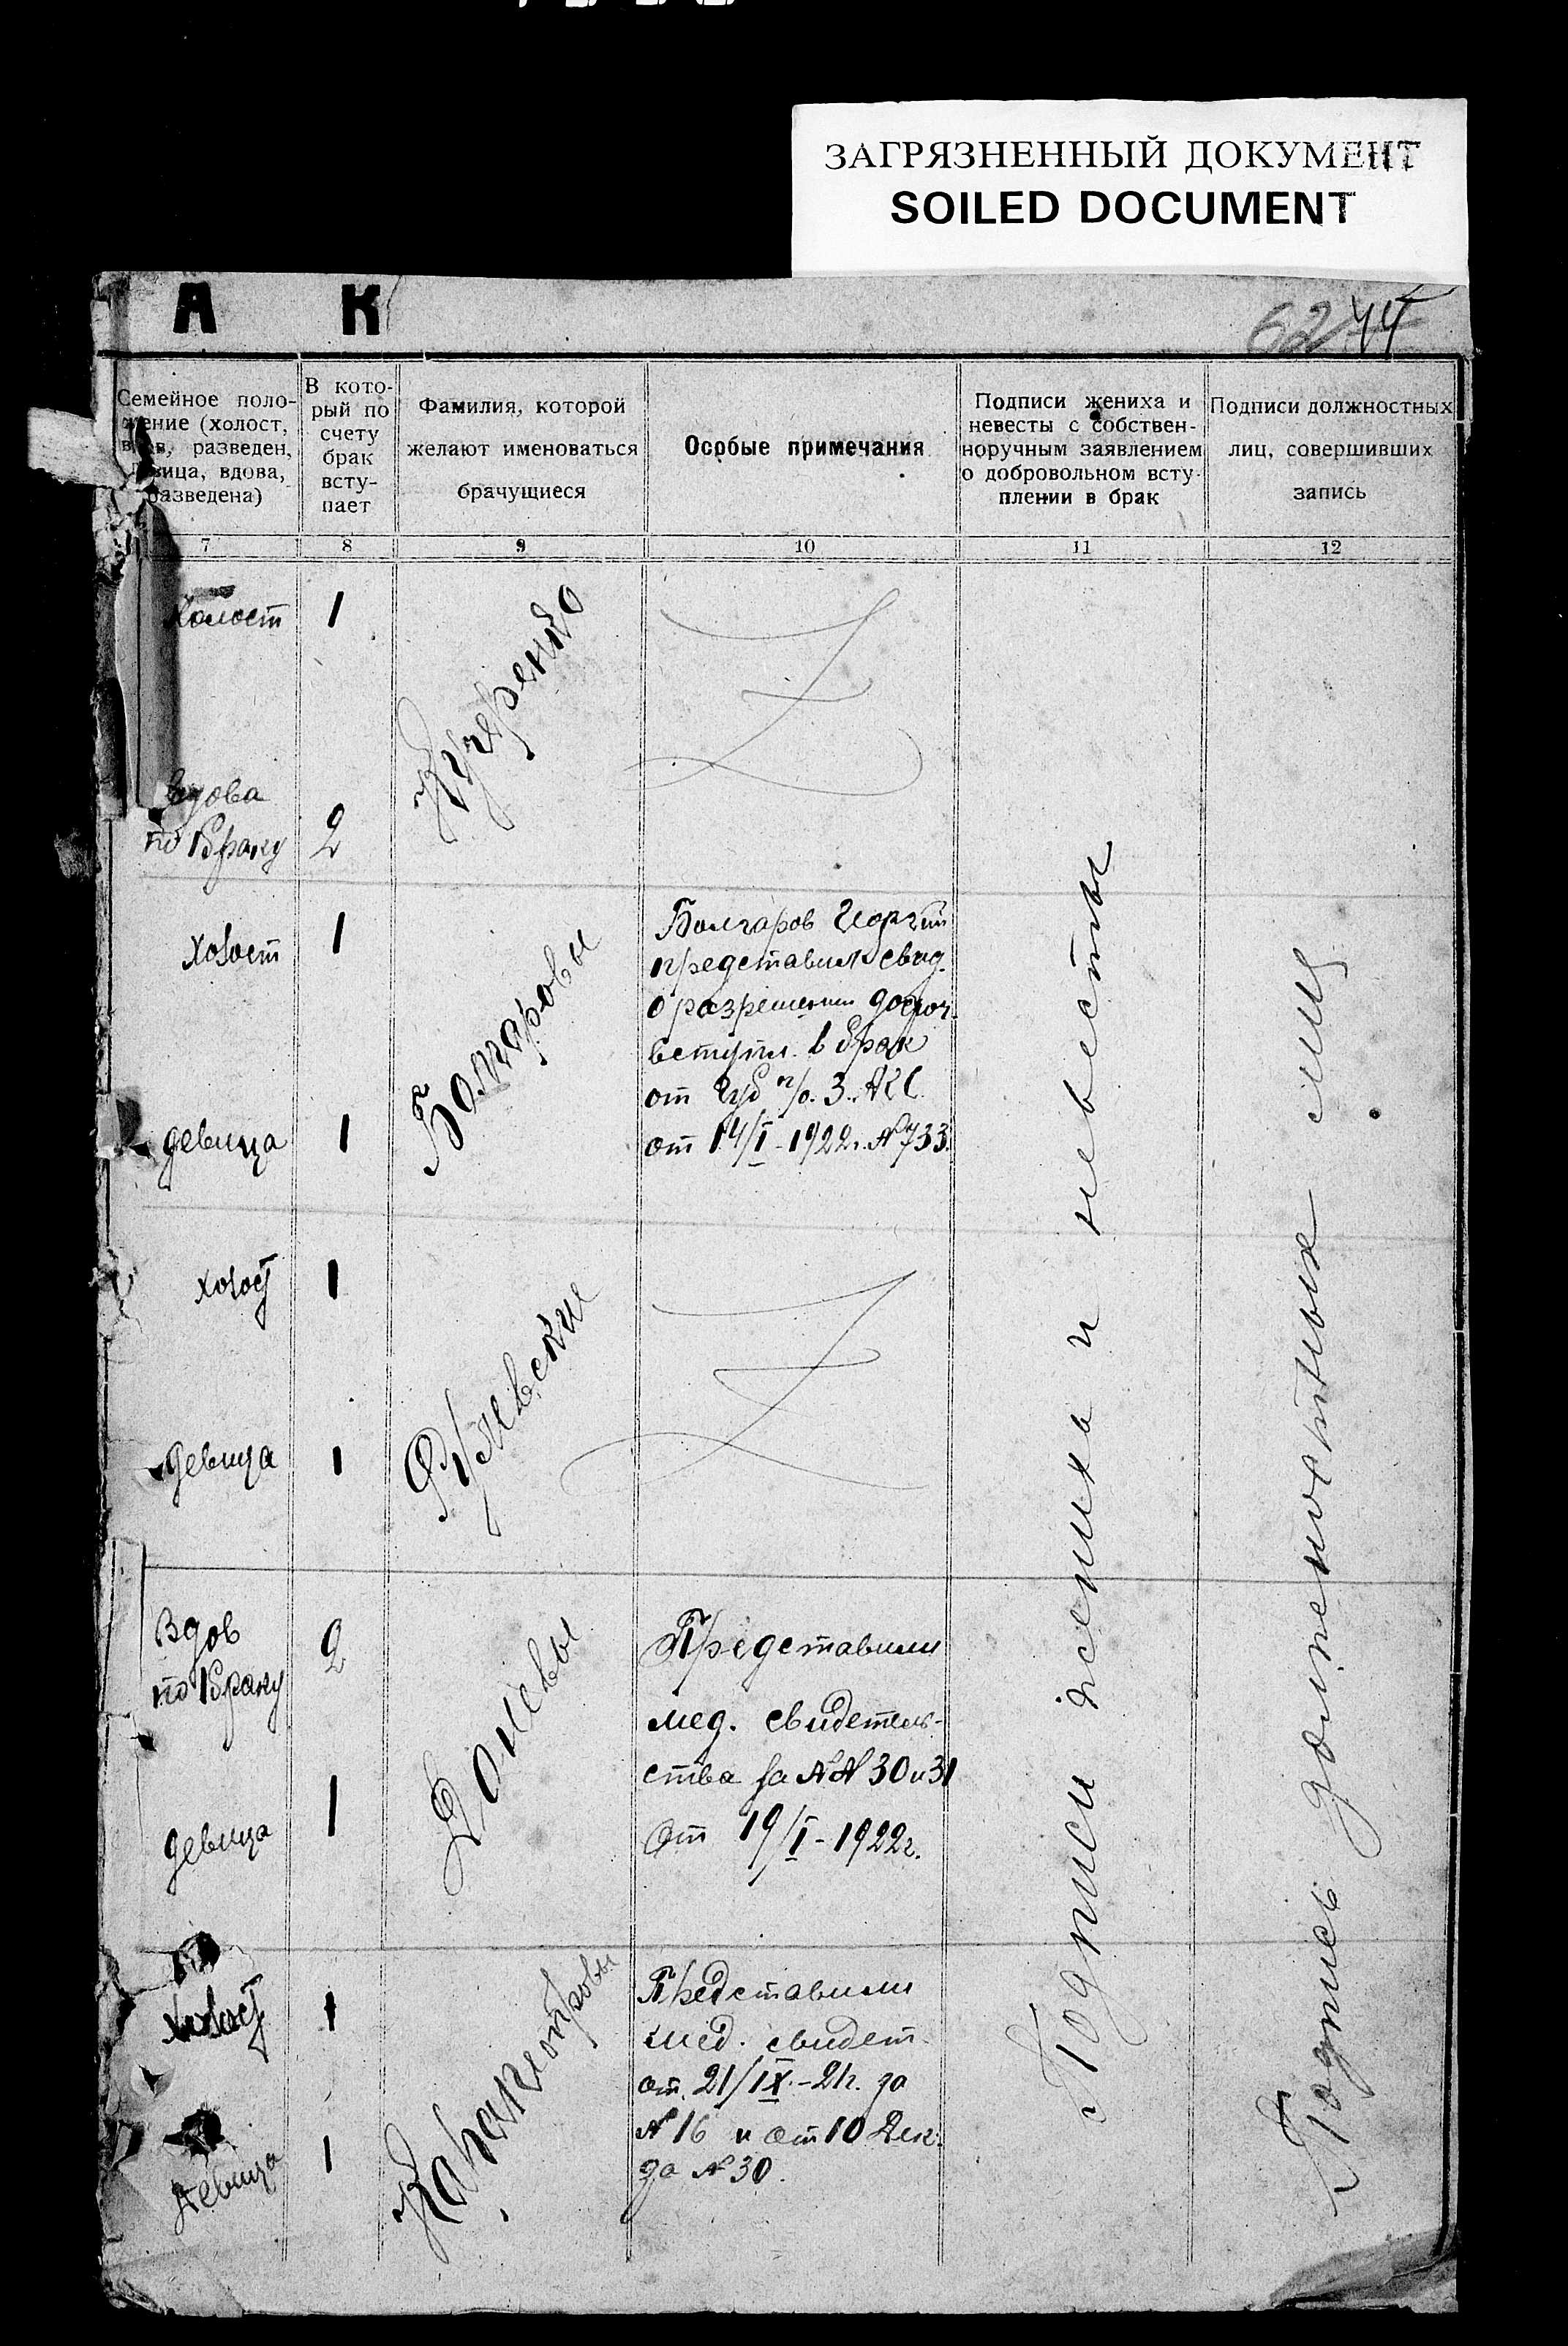 ЗАГРЯЗНЕННЫЙ ДОКУМЕНТ
SOILED DOCUMENT
А К
62 44
Семейное поло-
жение (холост,
вдов, разведен,
девица, вдова,
разведена)
7
В кото-
рый по
счету
брак
всту-
пает
8
Фамилия, которой
желают именоваться
брачущиеся
9
Особые примечания
10
Подписи жениха и
невесты с собствен-
норучным заявлением
о добровольном всту-
плении в брак
11
Подписи должностных
лиц, совершивших
запись
12
Холост
1
Кучеренко
вдова
по I браку
2
холост
1
девица
1
Болгаров Георгий
представил свид.
о разрешении
вступл. в брак
от Губ п/о. З.АКС.
от 14/I-1922г. № 733.
холост
1
девица
1
Вдов
по I браку
2
девица
1
Представили
мед. свидетель-
ства за №№ 30 и 31
от 19/I-1922г.
холост
1
девица
1
Представили
мед. свидет.
от 21/IX.-21г. за
№ 16 и от 10 Дек.
за № 30.
Подписи жениха и невесты
Подпись должностных лиц